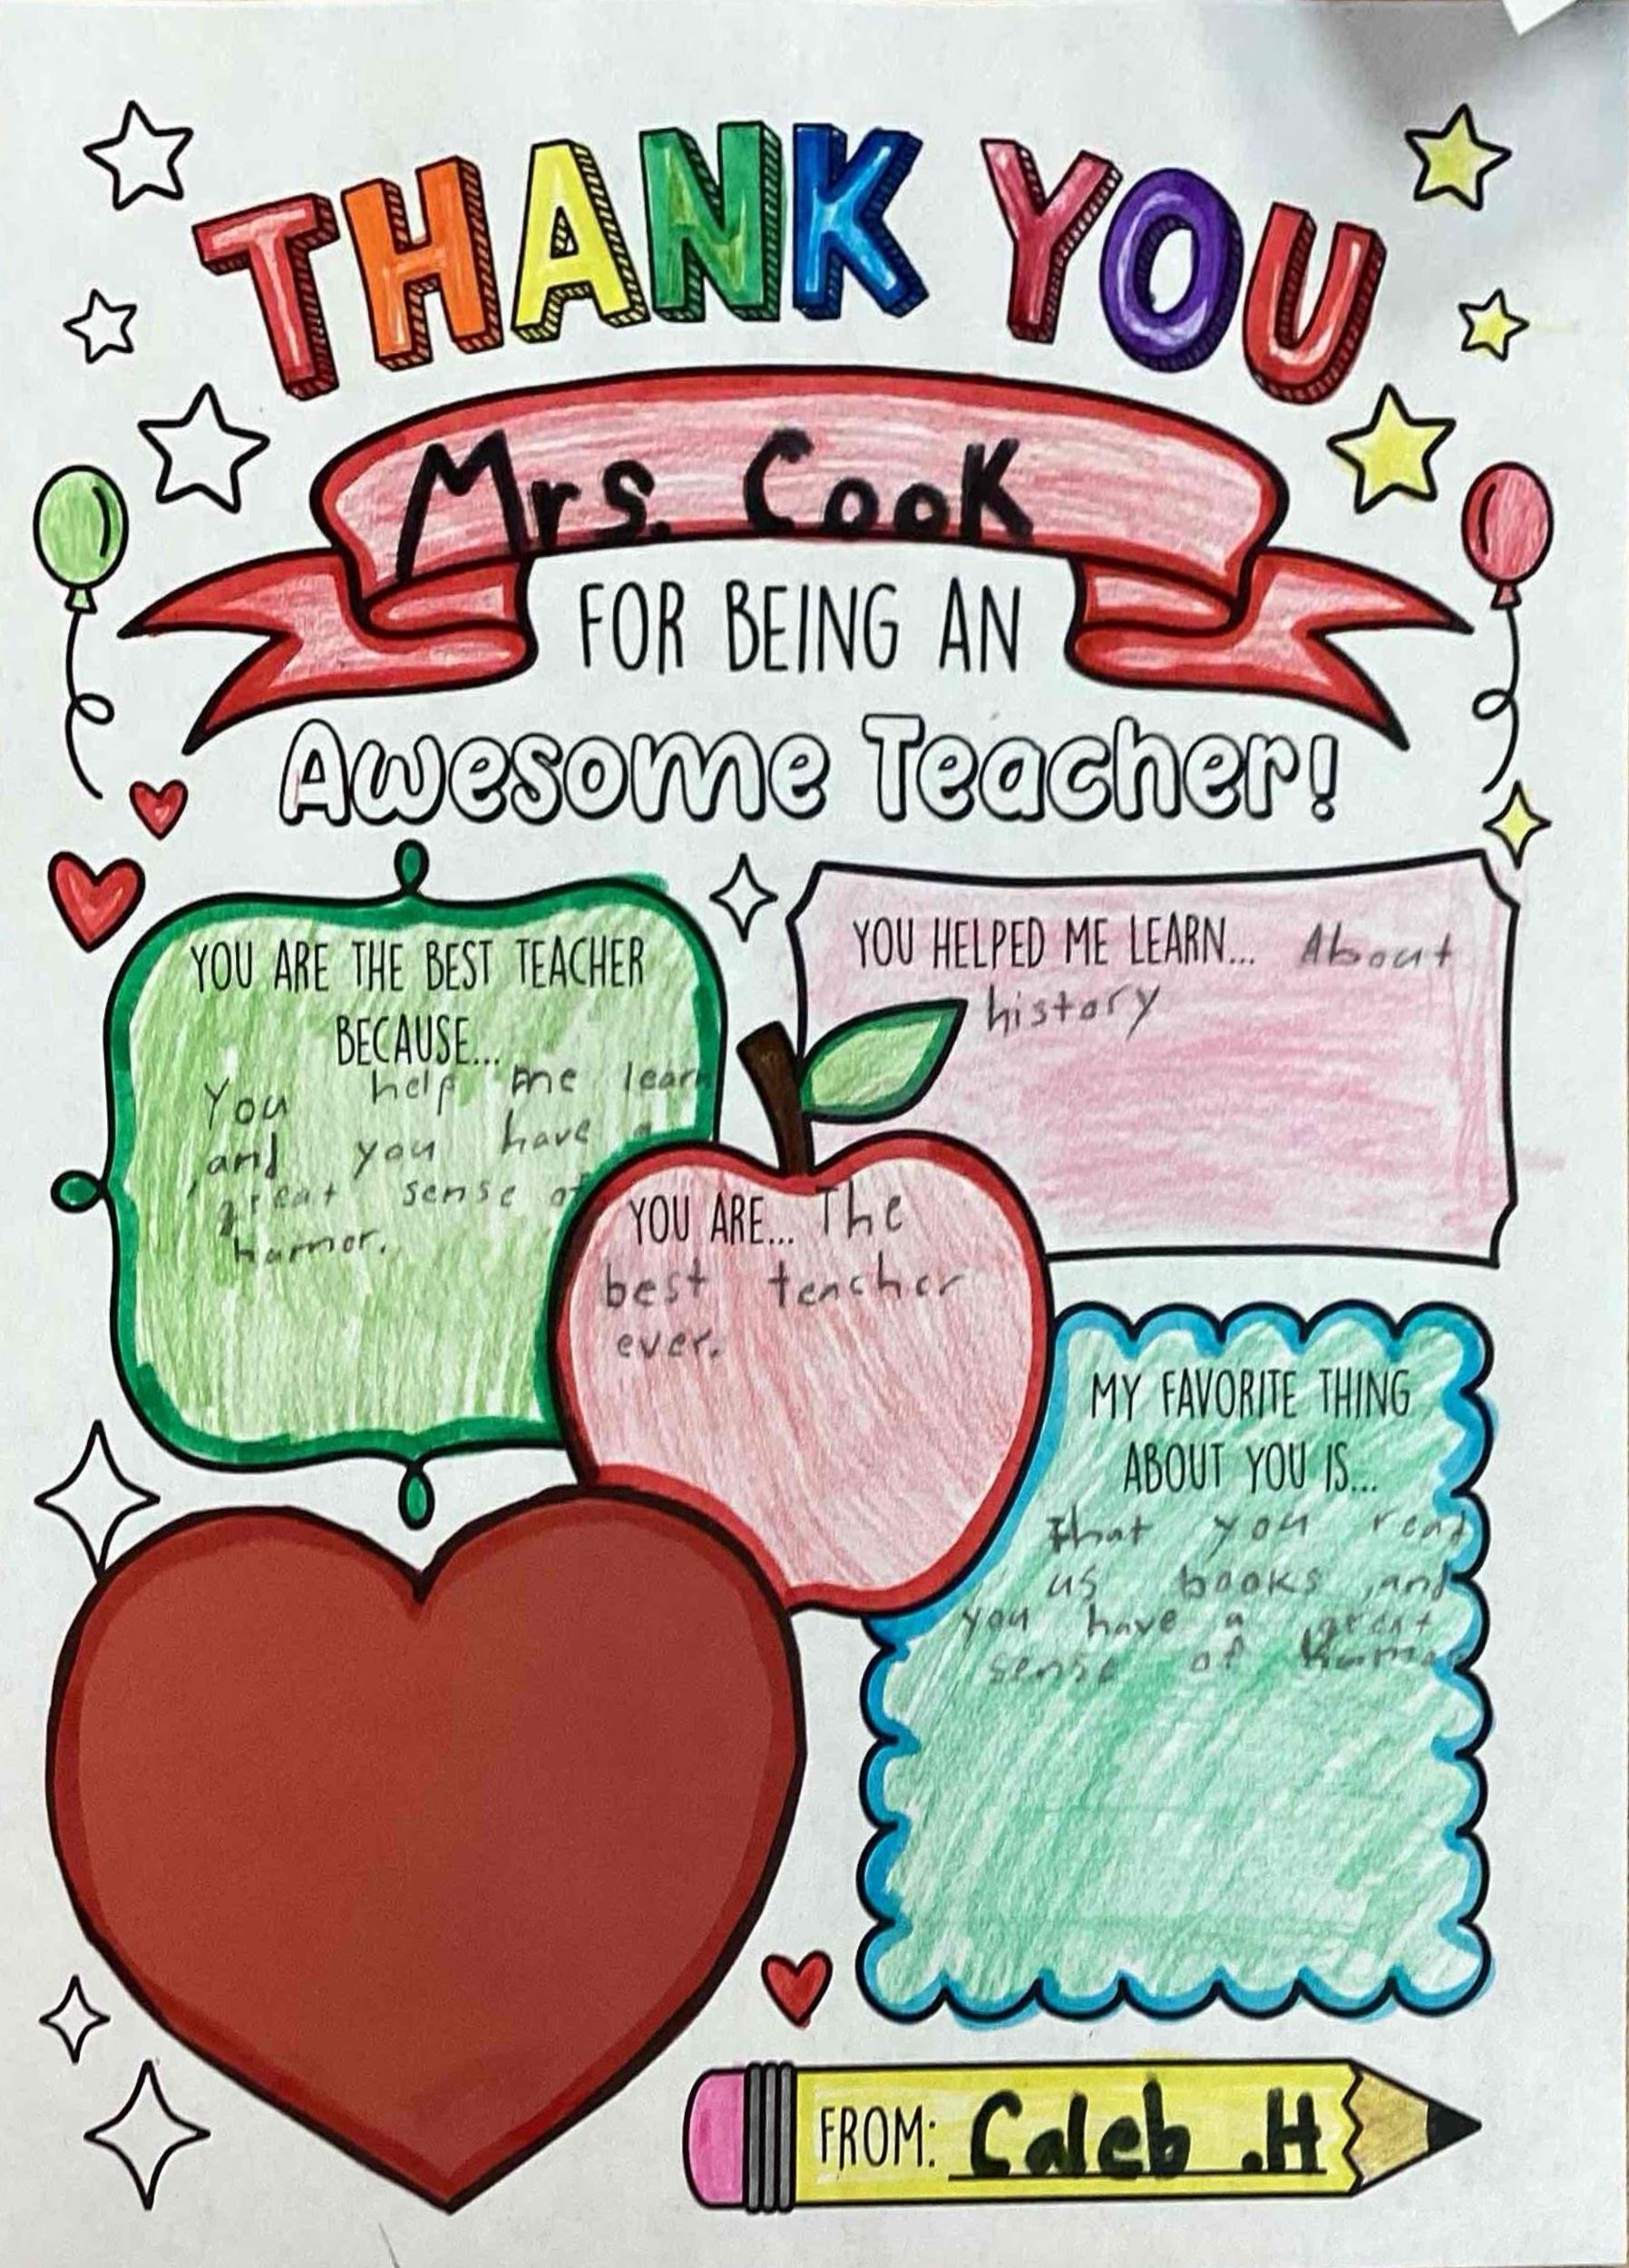 THANK YOU
Mrs. Cook
FOR BEING AN
Awesome Teacher!
YOU ARE THE BEST TEACHER
BECAUSE...
You help me learn
and you have a
great sense of
humor.
YOU HELPED ME LEARN... About
history
YOU ARE... The
best teacher
ever.
MY FAVORITE THING
ABOUT YOU IS...
that you read
us books and
you have a great
sense of humor
FROM: Caleb .H